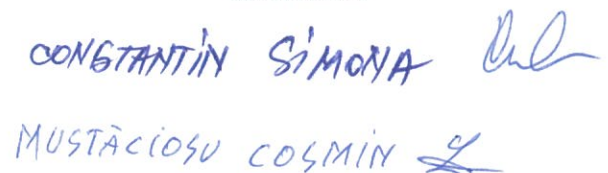 CONSTANTIN SIMONA
MUSTĂCIOSU COSMIN